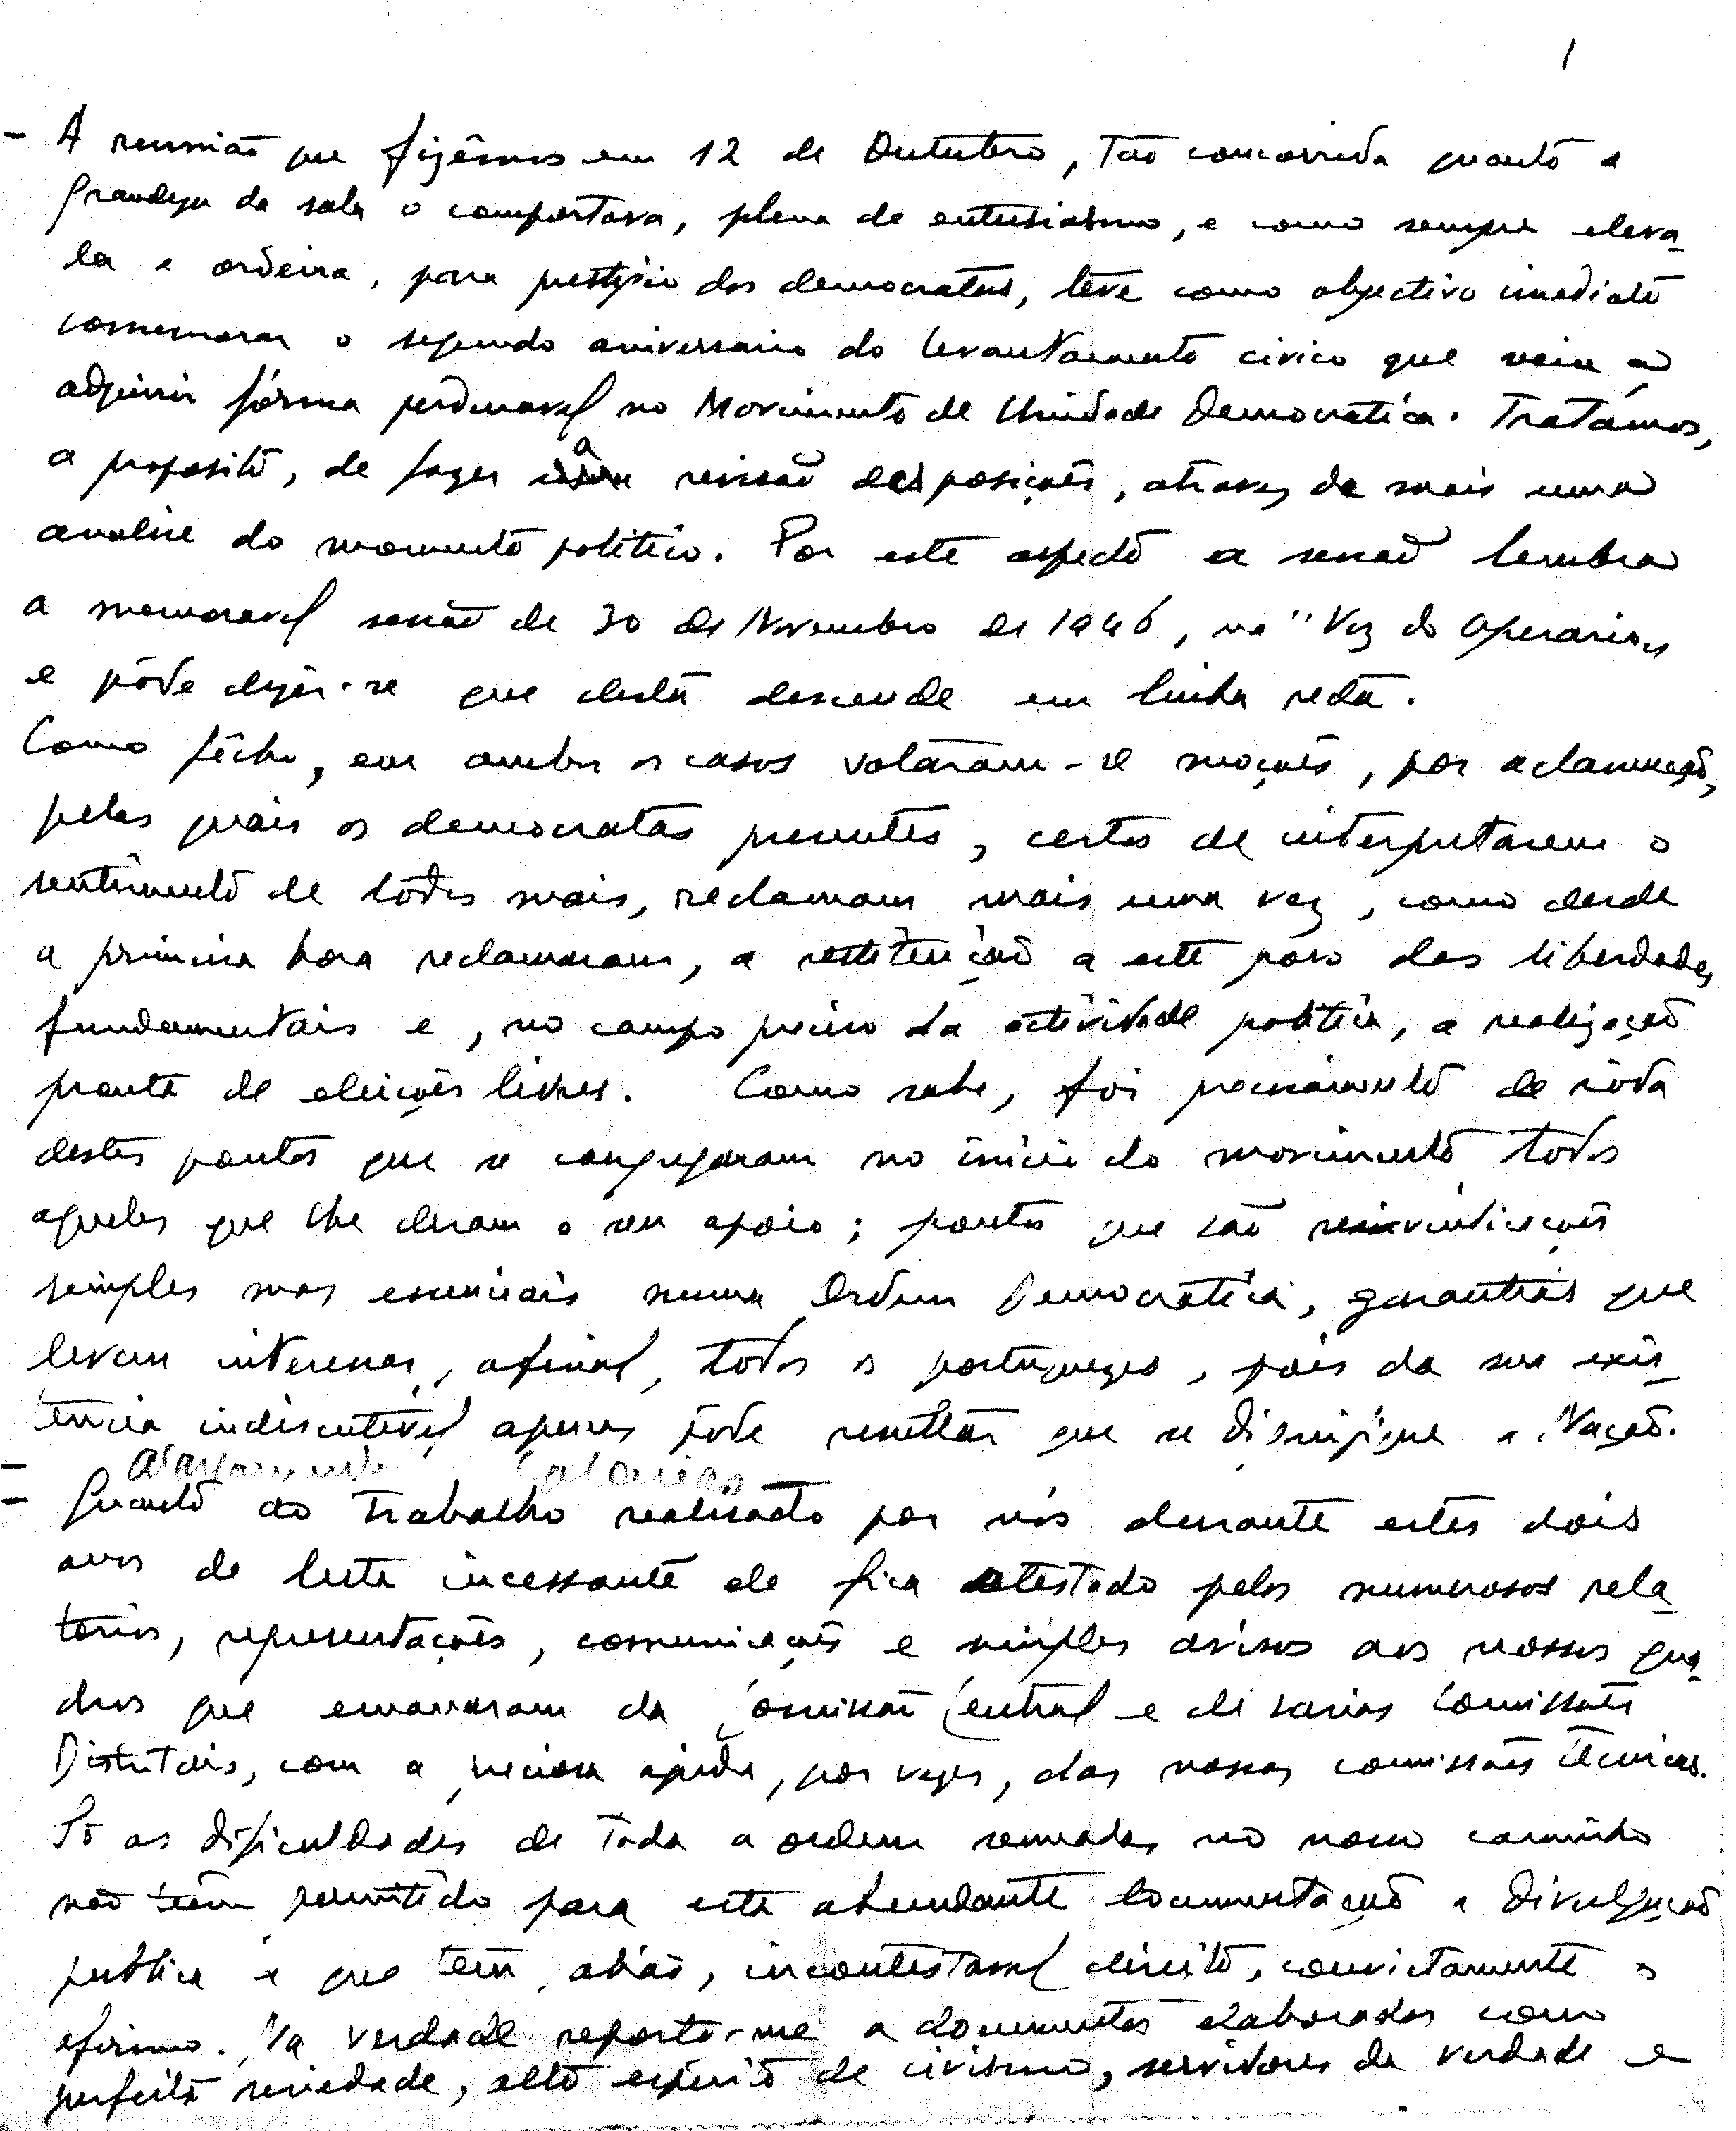 1
- A reunião que fizémos em 12 de Outubro, tão concorrida quanto a
grandeza da sala o comportava, plena de entusiasmo, e como sempre eleva-
da e ordeira, para prestígio dos democratas, teve como objectivo imediato
comemorar o segundo aniversario do levantamento civico que veiu a
adquirir fórma perduravel no Movimento de Unidade Democratica. Tratámos,
a proposito, de fazer a revisão das posições, atravez de mais uma
analise do momento politico. Por este aspecto a sessão lembra
a memoravel sessão de 30 de Novembro de 1946, na "Voz do Operario"
e póde dizer-se que desta descende em linha recta.
Como fêcho, em ambos os casos votaram-se moções, por aclamação,
pelas quais os democratas presentes, certos de interpretarem o
sentimento de todos mais, reclamam mais uma vez, como desde
a primeira hora reclamaram, a restituição a este povo das liberdades
fundamentais e, no campo preciso da actividade politica, a realização
pronta de eleições livres. Como sabe, foi precisamente de roda
destes pontos que se congregaram no inicio do movimento todos
aqueles que lhe deram o seu apoio; pontos que são reinvindicações
simples mas essenciais numa Ordem Democratica, garantias que
devem interessar, afinal, todos os portuguezes, pois da sua exis-
tencia indiscutivel apenas póde resultar que se dignifique a Nação.
- Alargamento Calunias
- Quanto ao trabalho realisado por nós durante estes dois
anos de luta incessante ele fica atestado pelos numerosos rela-
torios, representações, comunicações e simples avisos aos nossos qua-
dros que emanaram da Comissão Central e de varias Comissões
Distritais, com a preciosa ajuda, por vezes, das nossas comissões tecnicas.
Só as dificuldades de toda a ordem semeadas no nosso caminho
não têm permitido para esta abundante documentação a divulgação
publica a que tem, aliás, incontestavel direito, convictamente o
afirmo. Na verdade reporto-me a documentos elaborados com
perfeita seriedade, alto espirito de civismo, servidores da verdade e